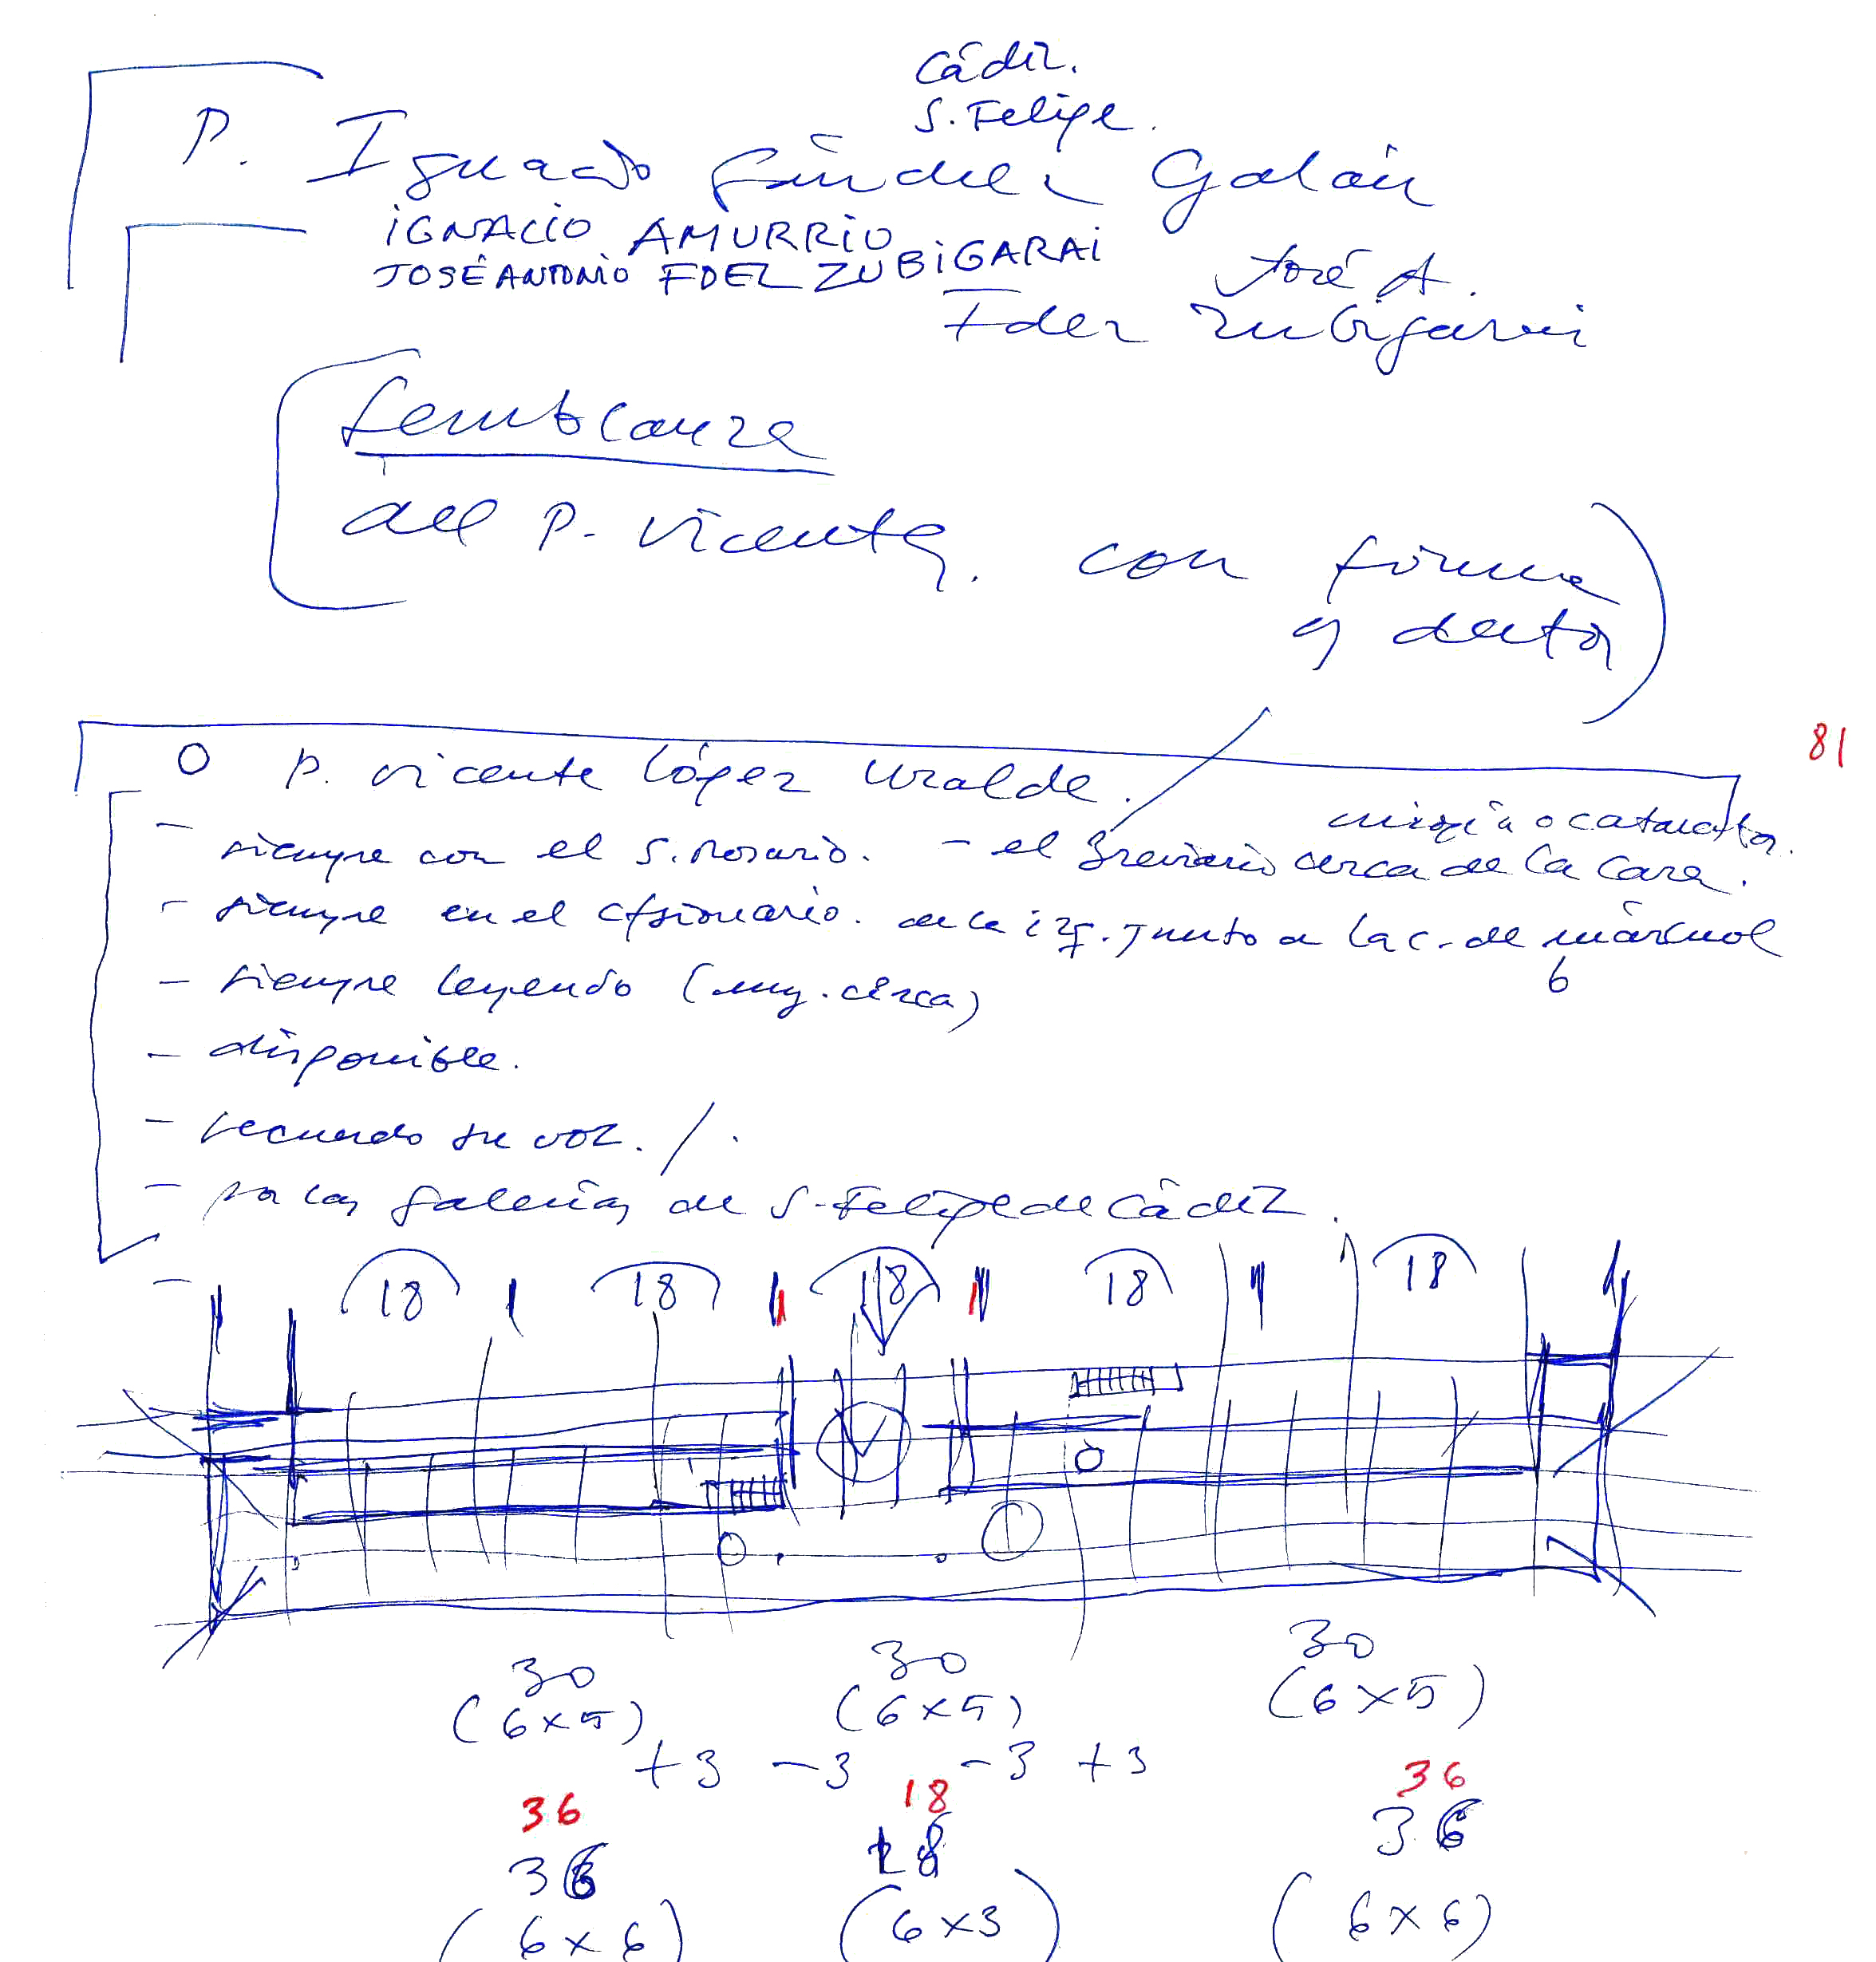 Cádiz.
S. Felipe.
P. Ignacio Galán
iGNACiO AMURRiO
JOSÉ ANTONiO FDEZ ZUBiGARAi
José A.
Fdez Zubigarai
Semblanza
del P. Vicente, con firma
y datos
81
O P. Vicente López Uralde.
miopía o cataratas.
- siempre con el S. Rosario. - el Breviario cerca de la cara.
- siempre en el cfsionario. de la izq. Junto a la c. de mármol
6
- siempre leyendo (muy. cerca)
- disponible.
- recuerdo su voz. /.
- por las galerías de S. Felipe de Cádiz.
-
18 18 18 18 18
30 30 30
(6×5) (6×5) (6×5)
+3 -3 -3 +3
36 18 36
36 18 36
(6×6) (6×3) (6×6)